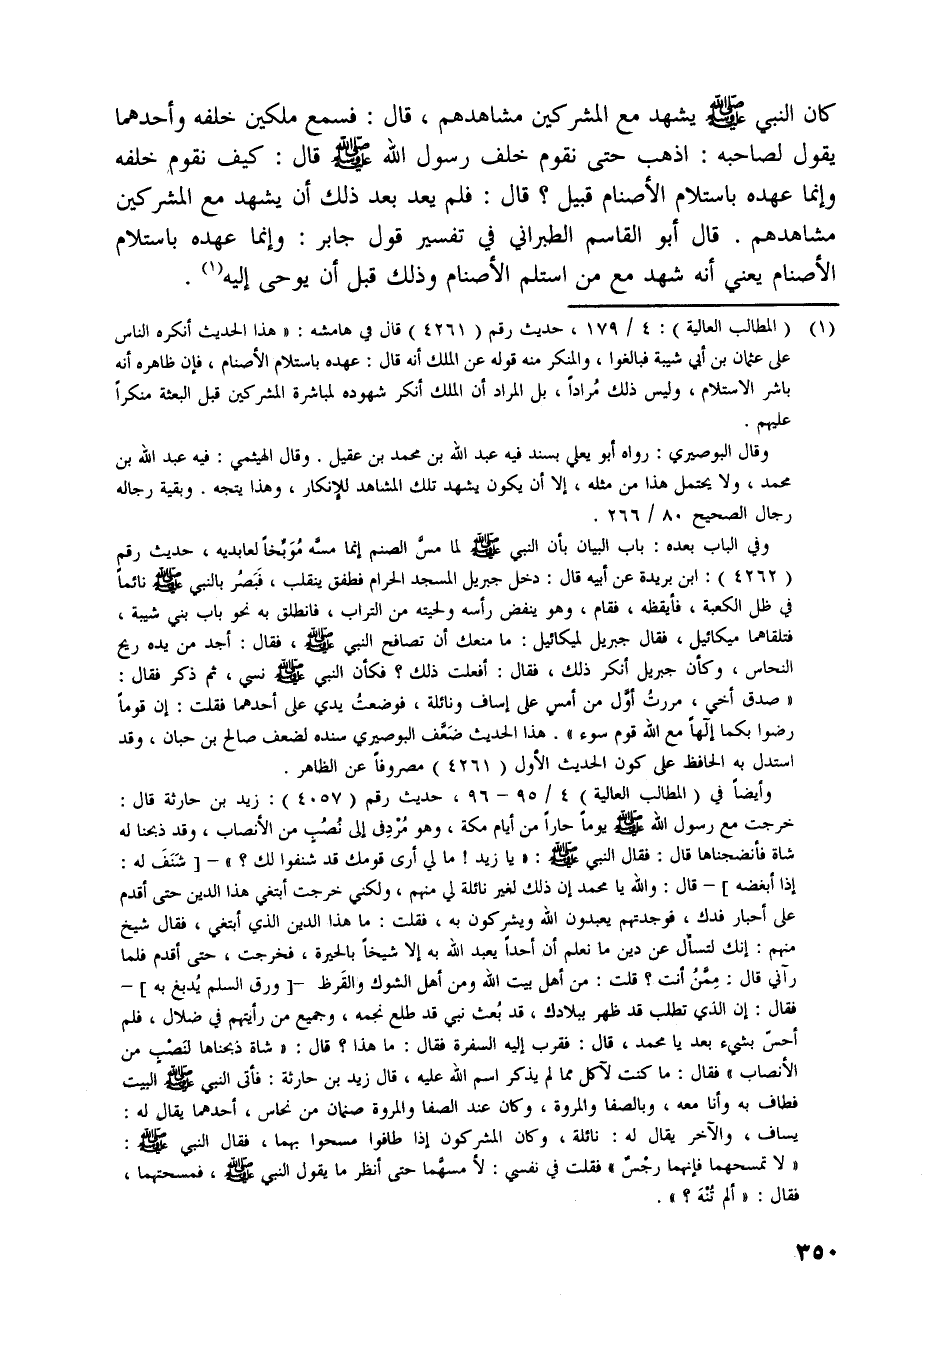 كان النبي ﷺ يشهد مع المشركين مشاهدهم ، قال : فسمع ملكين خلفه وأحدهما
يقول لصاحبه : اذهب حتى نقوم خلف رسول الله ﷺ قال : كيف نقوم خلفه
وإنما عهده باستلام الأصنام قبيل ؟ قال : فلم يعد بعد ذلك أن يشهد مع المشركين
مشاهدهم . قال أبو القاسم الطبراني في تفسير قول جابر : وإنما عهده باستلام
الأصنام يعني أنه شهد مع من استلم الأصنام وذلك قبل أن يوحى إليه(١) .
(١) ( المطالب العالية ) : ٤ / ١٧٩ ، حديث رقم ( ٤٢٦١ ) قال في هامشه : « هذا الحديث أنكره الناس
على عثمان بن أبي شيبة فبالغوا ، والمنكر منه قوله عن الملك أنه قال : عهده باستلام الأصنام ، فإن ظاهره أنه
باشر الاستلام ، وليس ذلك مُراداً ، بل المراد أن الملك أنكر شهوده لمباشرة المشركين قبل البعثة منكراً
عليهم .
وقال البوصيري : رواه أبو يعلي بسند فيه عبد الله بن محمد بن عقيل . وقال الهيثمي : فيه عبد الله بن
محمد ، ولا يحتمل هذا من مثله ، إلا أن يكون يشهد تلك المشاهد للإنكار ، وهذا يتجه . وبقية رجاله
رجال الصحيح ٨٠ / ٢٦٦ .
وفي الباب بعده : باب البيان بأن النبي ﷺ لما مسَّ الصنم إنما مسَّه مُوَبِّخاً لعابديه ، حديث رقم
( ٤٢٦٢ ) : ابن بريدة عن أبيه قال : دخل جبريل المسجد الحرام فطفق ينقلب ، فَبَصُر بالنبي ﷺ نائماً
في ظل الكعبة ، فأيقظه ، فقام ، وهو ينفض رأسه ولحيته من التراب ، فانطلق به نحو باب بني شيبة ،
فتلقاهما ميكائيل ، فقال جبريل لميكائيل : ما منعك أن تصافح النبي ﷺ ، فقال : أجد من يده ريح
النحاس ، وكأن جبريل أنكر ذلك ، فقال : أفعلت ذلك ؟ فكأن النبي ﷺ نسي ، ثم ذكر فقال :
« صدق أخي ، مررتُ أوَّل من أمس على إساف ونائلة ، فوضعتُ يدي على أحدهما فقلت : إن قوماً
رضوا بكما إلٰهاً مع الله قوم سوء » . هذا الحديث ضَعَّف البوصيري سنده لضعف صالح بن حبان ، وقد
استدل به الحافظ على كون الحديث الأول ( ٤٢٦١ ) مصروفاً عن الظاهر .
وأيضاً في ( المطالب العالية ) ٤ / ٩٥ – ٩٦ ، حديث رقم ( ٤٠٥٧ ) : زيد بن حارثة قال :
خرجت مع رسول الله ﷺ يوماً حاراً من أيام مكة ، وهو مُرْدِفى إلى نُصُبٍ من الأنصاب ، وقد ذبحنا له
شاة فأنضجناها قال : فقال النبي ﷺ : « يا زيد ! ما لي أرى قومك قد شنفوا لك ؟ » – [ شَنَفَ له :
إذا أبغضه ] – قال : والله يا محمد إن ذلك لغير نائلة لي منهم ، ولكني خرجت أبتغي هذا الدين حتى أقدم
على أحبار فدك ، فوجدتهم يعبدون الله ويشركون به ، فقلت : ما هذا الدين الذي أبتغي ، فقال شيخ
منهم : إنك لتسأل عن دين ما نعلم أن أحداً يعبد الله به إلا شيخاً بالحيرة ، فخرجت ، حتى أقدم فلما
رآني قال : مِمَّنْ أنت ؟ قلت : من أهل بيت الله ومن أهل الشوك والقَرظ –[ ورق السلم يُدبغ به ] –
فقال : إن الذي تطلب قد ظهر ببلادك ، قد بُعث نبي قد طلع نجمه ، وجميع من رأيتهم في ضلال ، فلم
أحسّ بشيء بعد يا محمد ، قال : فقرب إليه السفرة فقال : ما هذا ؟ قال : « شاة ذبحناها لنَصْبٍ من
الأنصاب » فقال : ما كنت لآكل مما لم يذكر اسم الله عليه ، قال زيد بن حارثة : فأتى النبي ﷺ البيت
فطاف به وأنا معه ، وبالصفا والمروة ، وكان عند الصفا والمروة صنمان من نحاس ، أحدهما يقال له :
يساف ، والآخر يقال له : نائلة ، وكان المشركون إذا طافوا مسحوا بهما ، فقال النبي ﷺ :
« لا تمسحهما فإنهما رجْسٌ » فقلت في نفسي : لأ مسهَّما حتى أنظر ما يقول النبي ﷺ ، فمسحتهما ،
فقال : « ألم تُنْهَ ؟ » .
٣٥٠